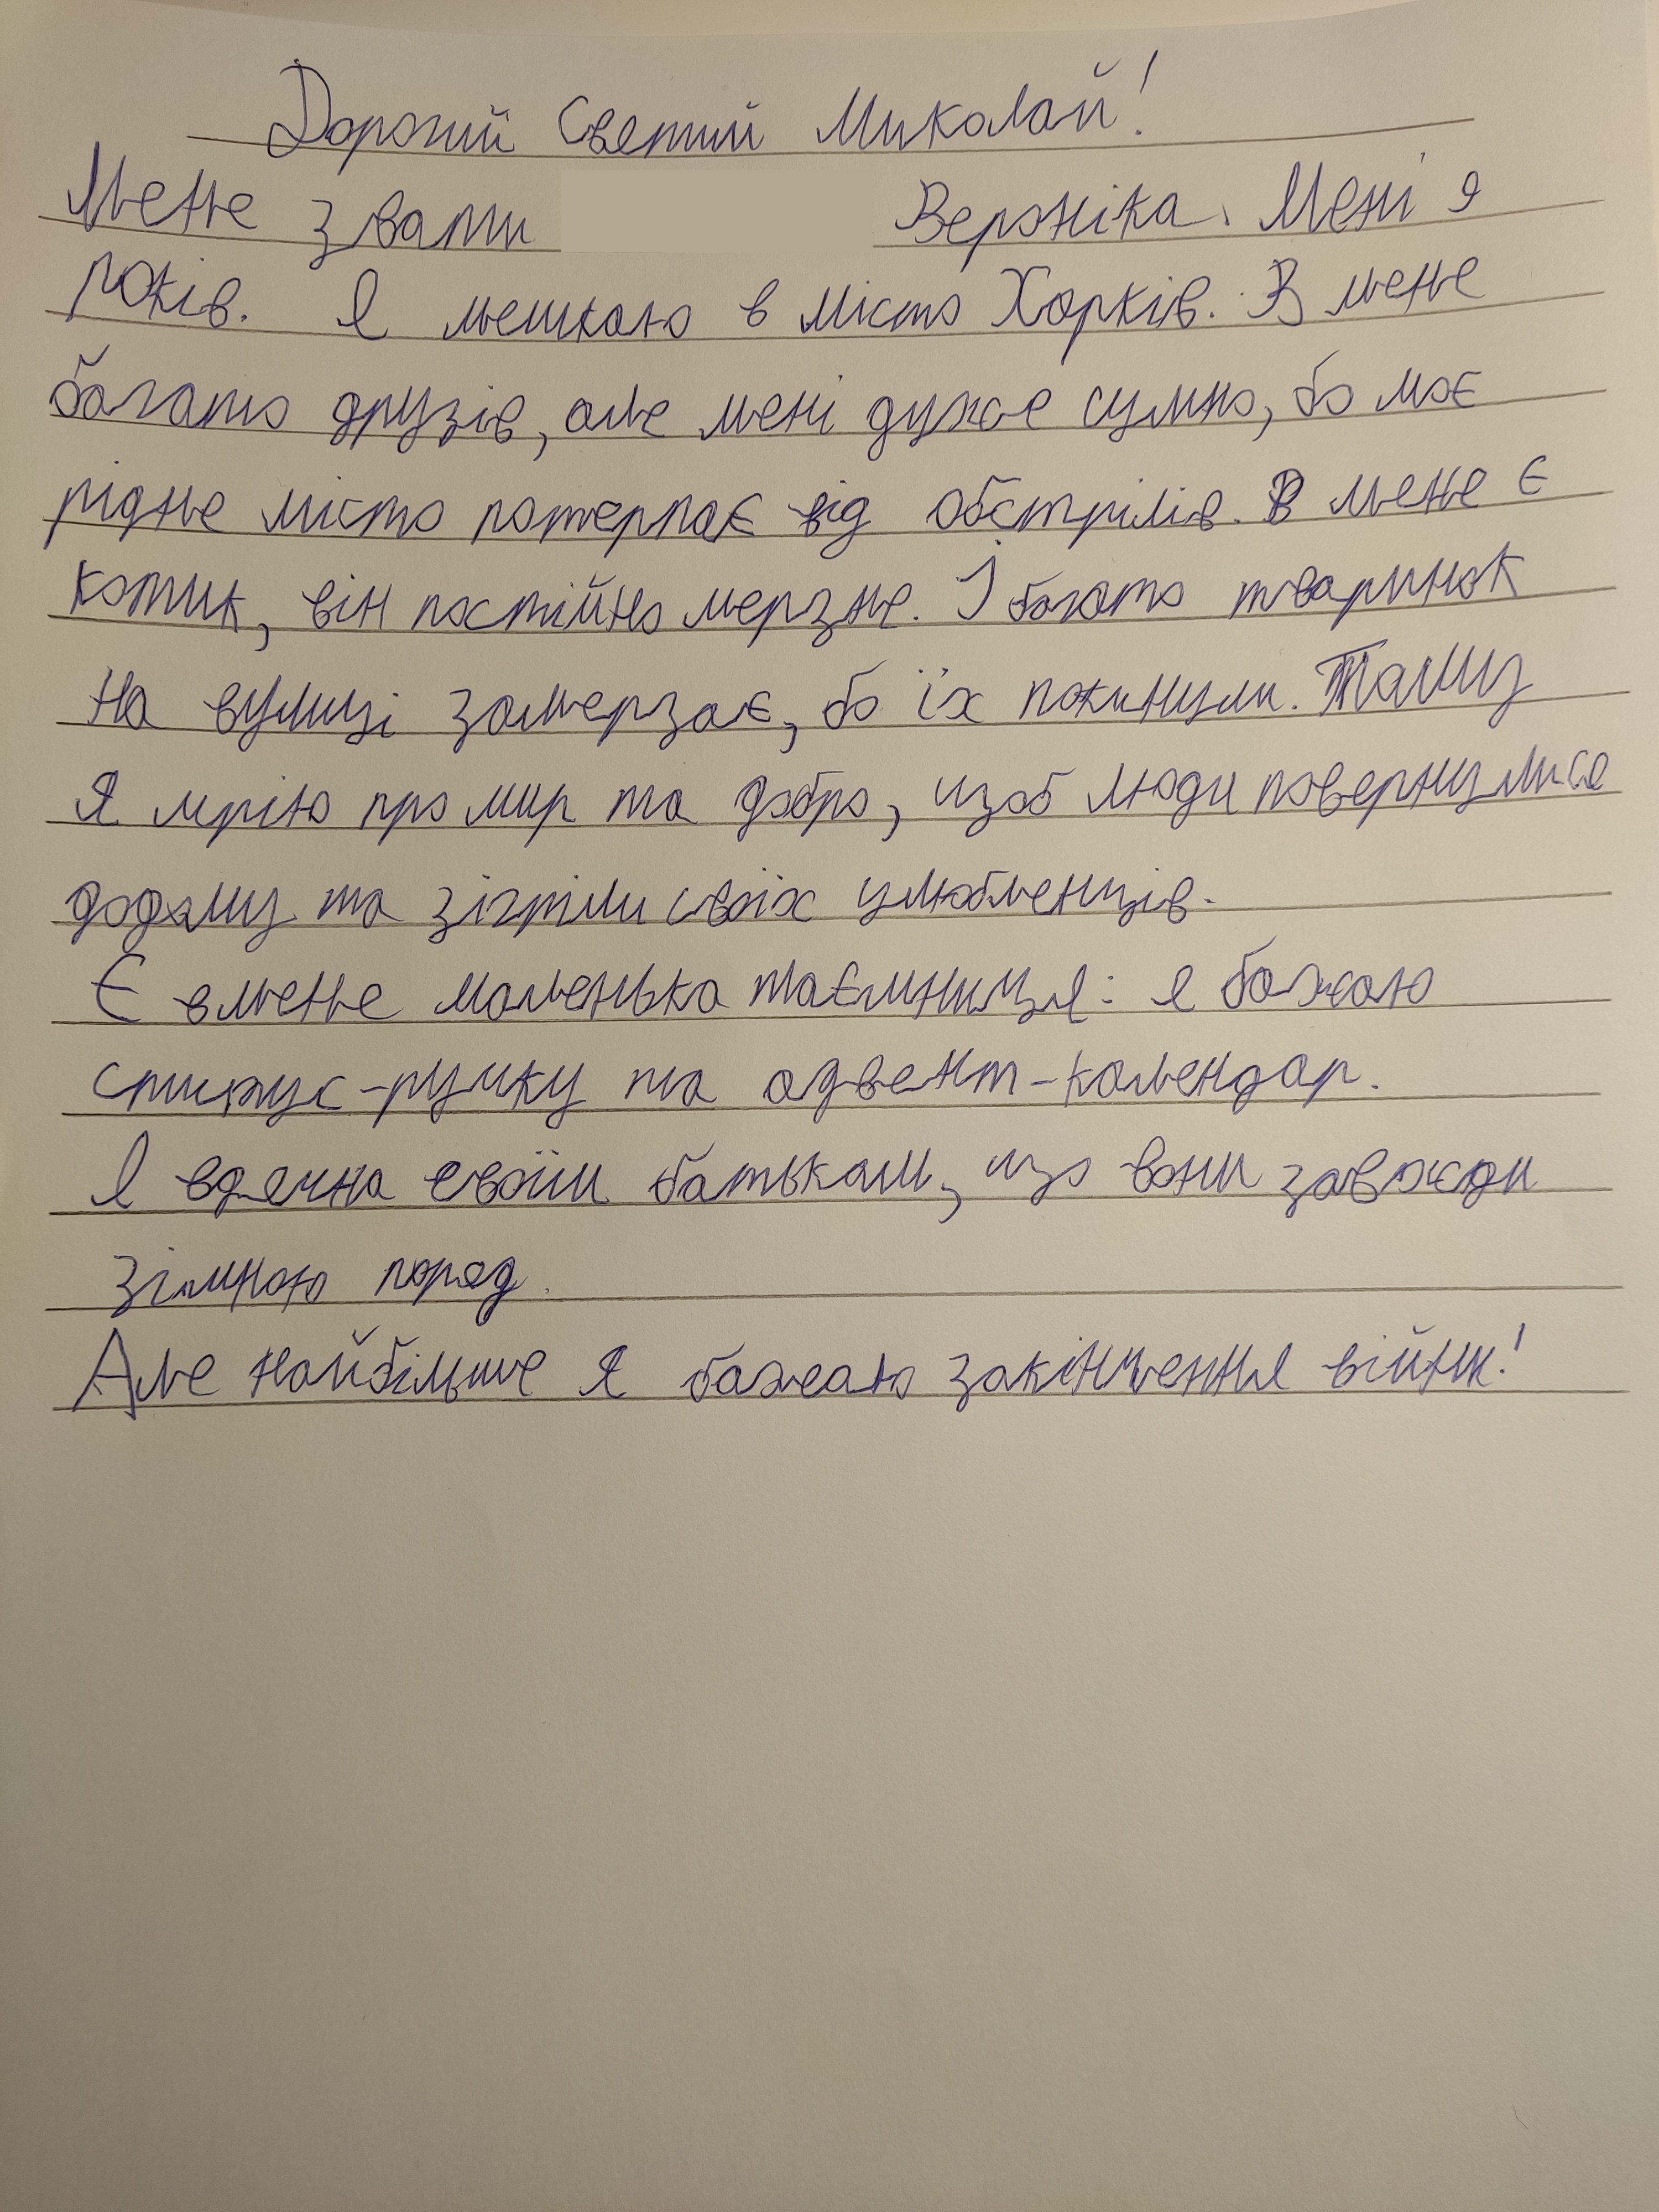 Дорогий Святий Миколай!
Мене звати Вероніка. Мені 9
років. Я мешкаю в місто Харків. В мене
багато друзів, але мені дуже сумно, бо моє
рідне місто потерпає від обстрілів. В мене є
котик, він постійно мерзне. І багато тваринок
на вулиці замерзає, бо їх покинули. Тому
я мрію про мир та добро, щоб люди повернулися
додому та зігріли своїх улюбленців.
Є в мене маленька таємниця: я бажаю
стилус-ручку та адвент-календар.
Я вдячна своїм батькам, що вони завжди
зі мною поряд.
Але найбільше я бажаю закінчення війни!